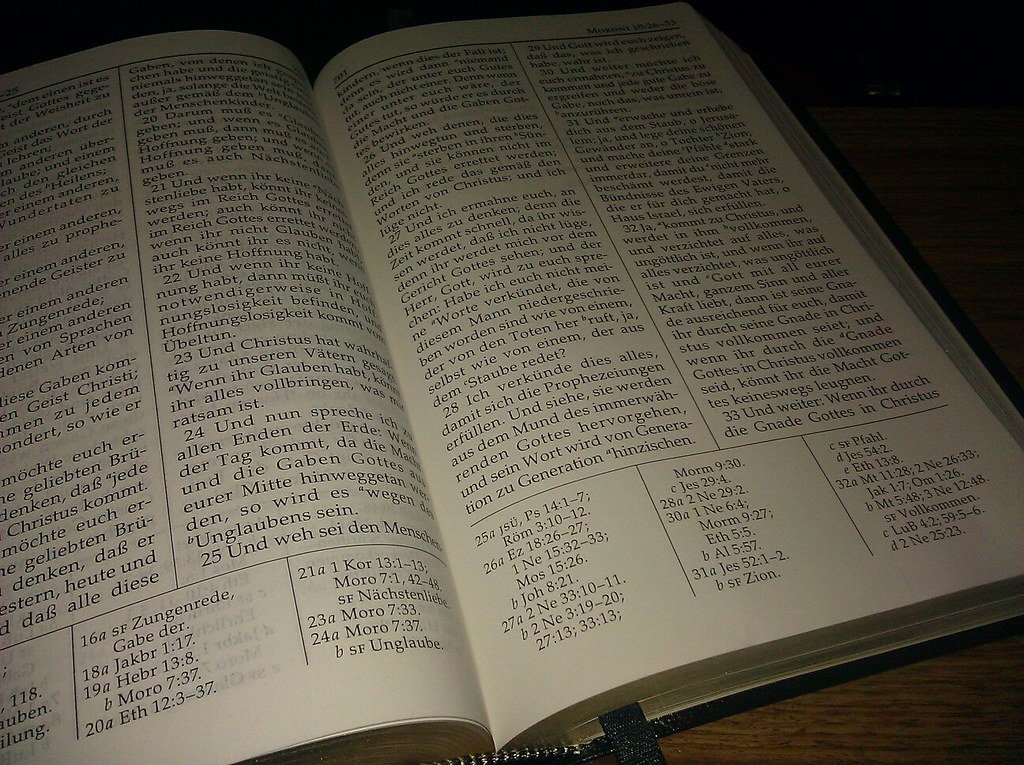 -25
dem einen ist es
Gottes gege-
t der Weisheit zu
anderen, durch
Geist das Wort der
lehre;
anderen über-
laube; und einem
ch den gleichen
en des Heilens;
er einem anderen,
Wundertaten zu
er einem anderen,
alles zu prophe-
er einem anderen,
nende Geister zu
er einem anderen
Zungenrede;
er einem anderen
n von Sprachen
denen Arten von
diese Gaben kom-
en Geist Christi;
mmen zu jedem
sondert, so wie er
möchte euch er-
ne geliebten Brü-
denken, daß ajede
Christus kommt.
möchte euch er-
ne geliebten Brü-
denken, daß er
estern, heute und
d daß alle diese
Gaben, von denen ich ge
chen habe und die geistig
niemals hinweggetan
den, ja, solange die Welt
außer gemäß dem aUnglau
der Menschenkinder.
20 Darum muß es aGlaub
geben; und wenn es Glaub
geben muß, dann muß es au
Hoffnung geben; und wenn
Hoffnung geben muß, dann
muß es auch Nächstenliebe
geben.
21 Und wenn ihr keine aNäch
stenliebe habt, könnt ihr keines
wegs im Reich Gottes errettet
werden; auch könnt ihr nicht
im Reich Gottes errettet werden
wenn ihr nicht Glauben habt
auch könnt ihr es nicht, wenn
ihr keine Hoffnung habt.
22 Und wenn ihr keine Hoff
nung habt, dann müßt ihr euch
notwendigerweise in Hoff
nungslosigkeit befinden,
Hoffnungslosigkeit kommt von
Übeltun.
23 Und Christus hat wahrhaf
tig zu unseren Vätern gesagt
aWenn ihr Glauben habt, könn
ihr alles vollbringen, was mi
ratsam ist.
24 Und nun spreche ich zu
allen Enden der Erde: Wenn
der Tag kommt, da die Mach
und die Gaben Gottes aus
eurer Mitte hinweggetan wer
den, so wird es awegen des
bUnglaubens sein.
25 Und weh sei den Menschen
, 118.
auben.
ilung.
16a SF Zungenrede,
Gabe der.
18a Jakbr 1:17.
19a Hebr 13:8.
b Moro 7:37.
20a Eth 12:3–37.
21a 1 Kor 13:1–13;
Moro 7:1, 42–48.
SF Nächstenliebe.
23a Moro 7:33.
24a Moro 7:37.
b SF Unglaube.
701
MORONI 10:26–33
kindern, wenn dies der Fall ist;
denn es wird dann aniemand
dasein, der unter euch Gutes
tut, auch nicht einer. Denn wenn
einer unter euch wäre, der
Gutes tut, so würde er es durch
die Macht und die Gaben Got-
tes bewirken.
26 Und weh denen, die dies
alles hinwegtun und sterben,
denn sie asterben in ihren bSün-
den, und sie können nicht im
Reich Gottes errettet werden;
und ich rede das gemäß den
Worten von Christus; und ich
lüge nicht.
27 Und ich ermahne euch, an
dies alles zu denken, denn die
Zeit kommt schnell, da ihr wis-
sen werdet, daß ich nicht lüge,
denn ihr werdet mich vor dem
Gericht Gottes sehen; und der
Herr, Gott, wird zu euch spre-
chen: Habe ich euch nicht mei-
ne aWorte verkündet, die von
diesem Mann niedergeschrie-
ben worden sind wie von einem,
der von den Toten her bruft, ja,
selbst wie von einem, der aus
dem cStaube redet?
28 Ich verkünde dies alles,
damit sich die Prophezeiungen
erfüllen. Und siehe, sie werden
aus dem Mund des immerwäh-
renden Gottes hervorgehen,
und sein Wort wird von Genera-
tion zu Generation ahinzischen.
29 Und Gott wird euch zeigen,
daß das, was ich geschrieben
habe, wahr ist.
30 Und weiter möchte ich
euch ermahnen, azu Christus zu
kommen und jede gute Gabe zu
ergreifen und weder die böse
Gabe, noch das, was unrein ist,
anzurühren.
31 Und aerwache und erhebe
dich aus dem Staub, o Jerusa-
lem; ja, und lege deine schönen
Gewänder an, o Tochter bZion;
und mache deine cPfähle dstark
und erweitere deine Grenzen
immerdar, damit du enicht mehr
beschämt werdest, damit die
Bündnisse des Ewigen Vaters,
die er für dich gemacht hat, o
Haus Israel, sich erfüllen.
32 Ja, akommt zu Christus, und
werdet in ihm bvollkommen,
und verzichtet auf alles, was
ungöttlich ist, und wenn ihr auf
alles verzichtet, was ungöttlich
ist und cGott mit all eurer
Macht, ganzem Sinn und aller
Kraft liebt, dann ist seine Gna-
de ausreichend für euch, damit
ihr durch seine Gnade in Chri-
stus vollkommen seiet; und
wenn ihr durch die dGnade
Gottes in Christus vollkommen
seid, könnt ihr die Macht Got-
tes keineswegs leugnen.
33 Und weiter: Wenn ihr durch
die Gnade Gottes in Christus
25a JSÜ, Ps 14:1–7;
Röm 3:10–12.
26a Ez 18:26–27;
1 Ne 15:32–33;
Mos 15:26.
b Joh 8:21.
27a 2 Ne 33:10–11.
b 2 Ne 3:19–20;
27:13; 33:13;
Morm 9:30.
c Jes 29:4.
28a 2 Ne 29:2.
30a 1 Ne 6:4;
Morm 9:27;
Eth 5:5.
b Al 5:57.
31a Jes 52:1–2.
b SF Zion.
c SF Pfahl.
d Jes 54:2.
e Eth 13:8.
32a Mt 11:28; 2 Ne 26:33;
Jak 1:7; Om 1:26.
b Mt 5:48; 3 Ne 12:48.
SF Vollkommen.
c LuB 4:2; 59:5–6.
d 2 Ne 25:23.